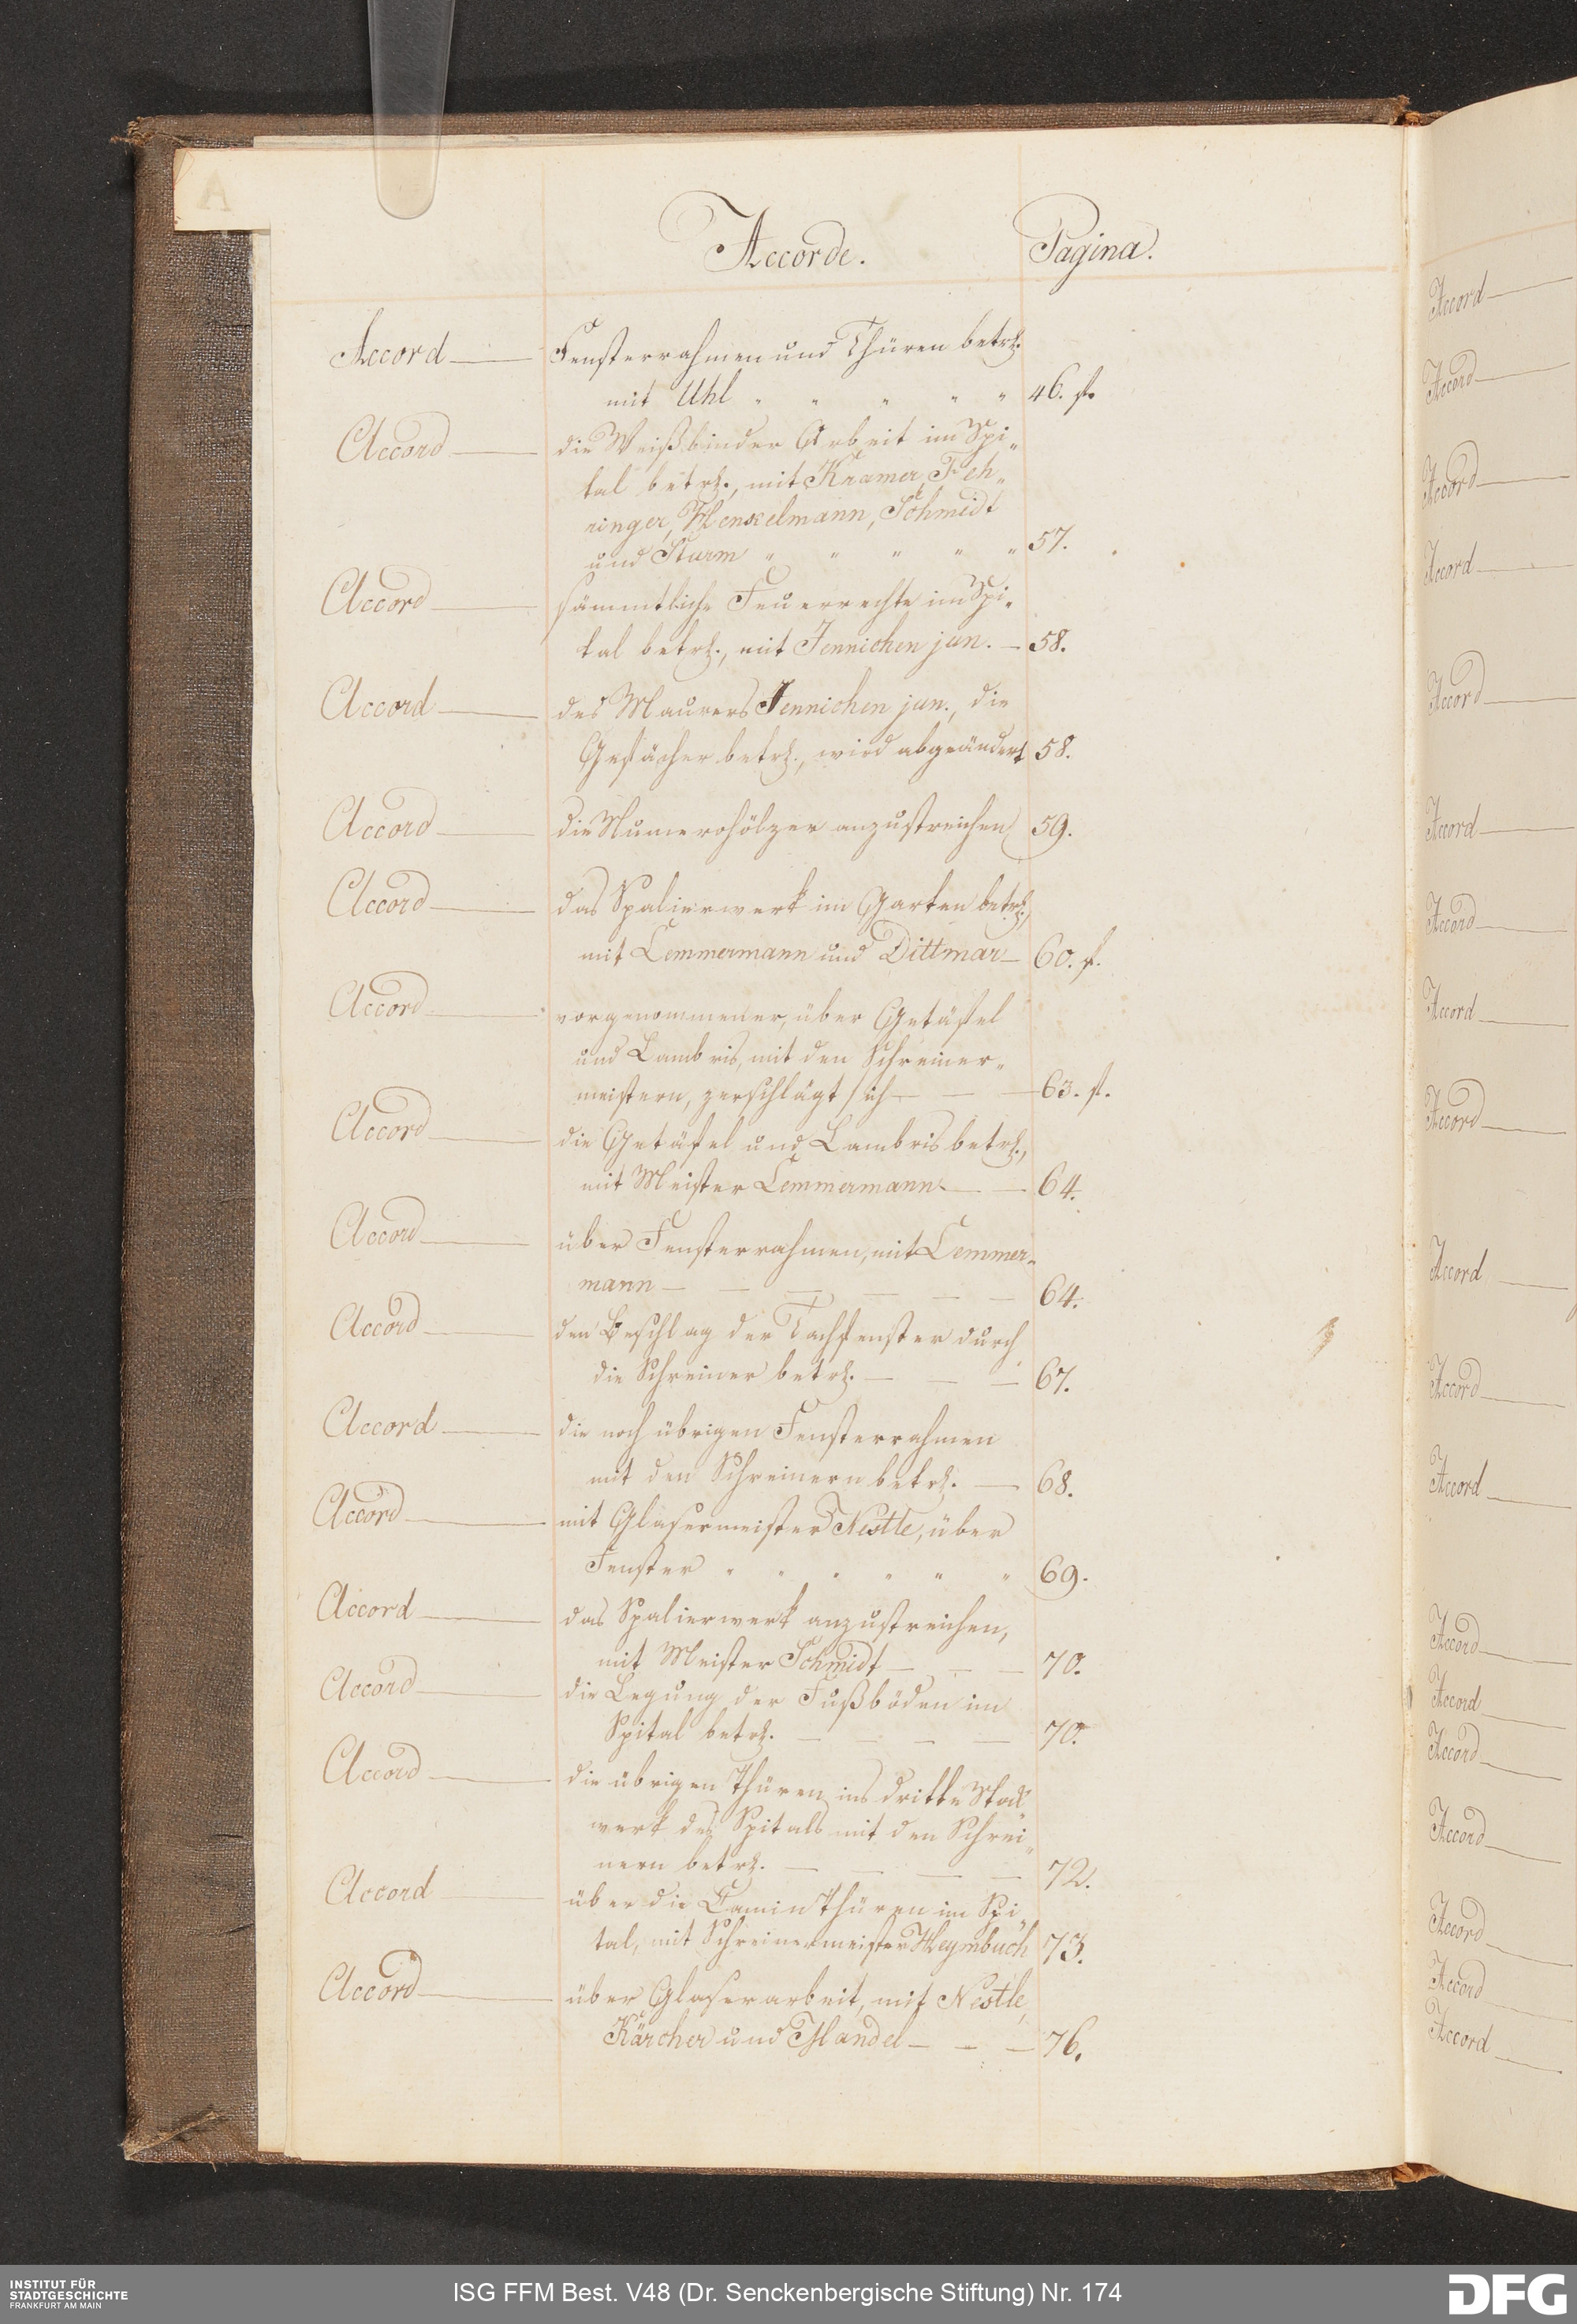 A
Accorde. Pagina.
Accord — Fensterrahmen und Thüren betrf.
mit Uhl " " " " " 46. f.
Accord — die Weißbinder Arbeit im Spi„
tal betrf., mit Kramer, Feh„
ringer, Henkelmann, Schmidt
und Sturm " " " " " 57.
Accord — sämmtliche Feuerrechte im Spi„
tal betrf., mit Jennichen jun. — 58.
Accord — des Maurers Jennichen jun., die
Gefächer betrf., wird abgeändert 58.
Accord — die Numerohölzer anzustreichen 59.
Accord — das Spalierwerk im Garten betrf.,
mit Lemmermann und Dittmar — 60. f.
Accord — vorgenommener, über Getäfel
und Lambris, mit den Schreiner„
meistern, zerschlägt sich — — — 63. f.
Accord — die Getäfel und Lambris betrf.,
mit Meister Lemmermann — — 64.
Accord — über Fensterrahmen, mit Lemmer„
mann — — — — — — 64.
Accord — den Beschlag der Dachfenster durch
die Schreiner betrf. — — — 67.
Accord — die noch übrigen Fensterrahmen
mit den Schreinern betrf. — 68.
Accord — mit Glasermeister Nestle, über
Fenster " " " " " " 69.
Accord — das Spalierwerk anzustreichen,
mit Meister Schmidt — — — 70.
Accord — die Legung der Fußböden im
Spital betrf. — — — — 70.
Accord — die übrigen Thüren ins dritte Stock
werk des Spitals mit den Schrei„
nern betrf. — — — — 72.
Accord — über die Camin Thüren im Spi„
tal, mit Schreinermeister Heymbuch 73.
Accord — über Glaserarbeit, mit Nestle,
Kärcher und Mandel — — — 76.
Accord —
Accord —
Accord —
Accord —
Accord —
Accord —
Accord —
Accord —
Accord —
Accord —
Accord —
Accord —
Accord —
Accord —
Accord —
Accord —
Accord —
Accord —
Accord —
INSTITUT FÜR
STADTGESCHICHTE
FRANKFURT AM MAIN
ISG FFM Best. V48 (Dr. Senckenbergische Stiftung) Nr. 174
DFG